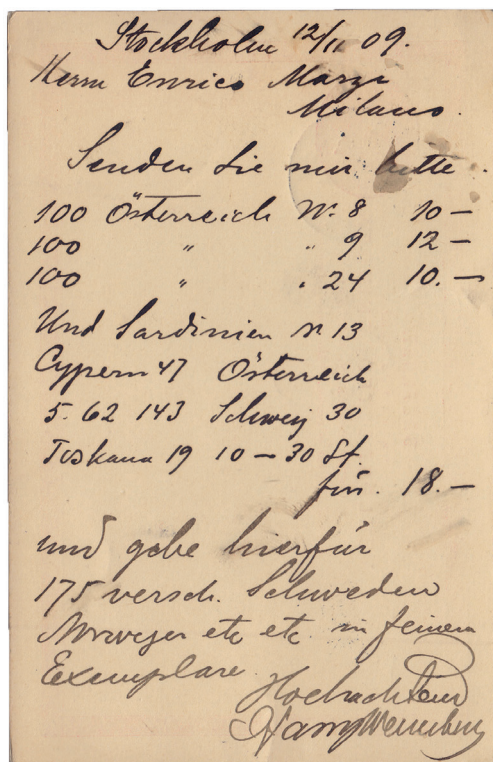 Stockholm 12/11 09.
Herrn Enrico Marzi
Milano.
Senden Sie mir bitte.
100 Österreich Nr. 8 10 —
100 " " 9 12 —
100 " " 24 10. —
Und Sardinien Nr 13
Cypern 47 Österreich
5. 62 143 Schweiz 30
Toskana 19 10 — 30 St.
für. 18. —
und gebe hierfür
175 versch. Schweden
Norweger etc etc. in feinem
Exemplare.
Hochachtend